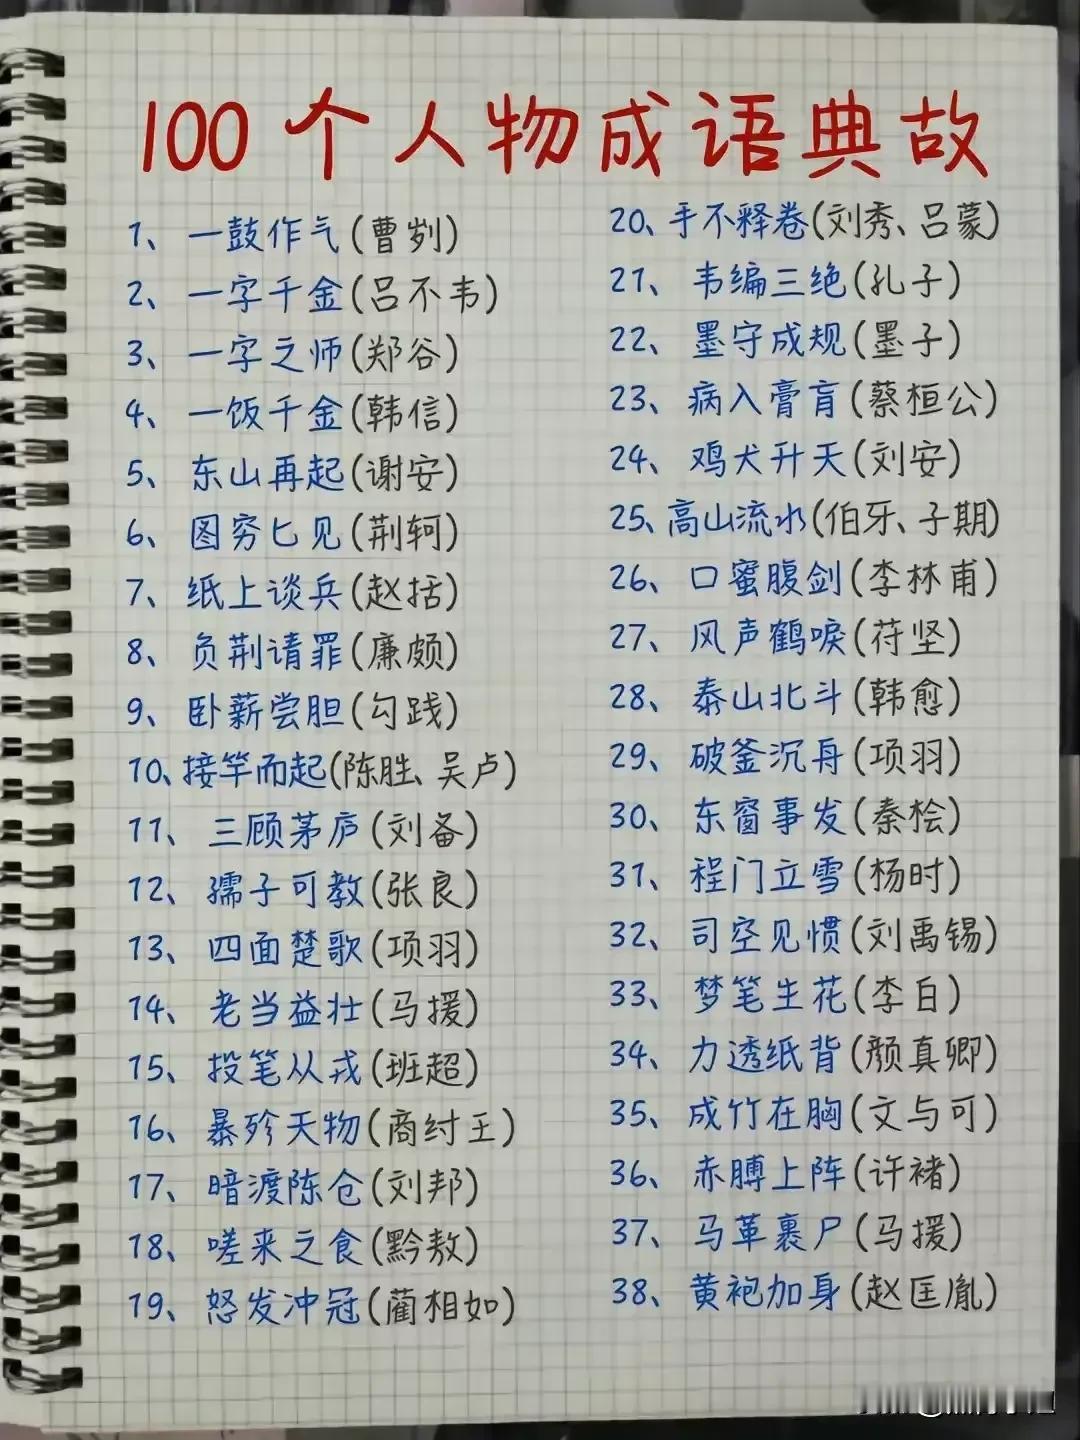 100个人物成语典故
1、一鼓作气(曹刿)
2、一字千金(吕不韦)
3、一字之师(郑谷)
4、一饭千金(韩信)
5、东山再起(谢安)
6、图穷匕见(荆轲)
7、纸上谈兵(赵括)
8、负荆请罪(廉颇)
9、卧薪尝胆(勾践)
10、接竿而起(陈胜、吴卢)
11、三顾茅庐(刘备)
12、孺子可教(张良)
13、四面楚歌(项羽)
14、老当益壮(马援)
15、投笔从戎(班超)
16、暴殄天物(商纣王)
17、暗渡陈仓(刘邦)
18、嗟来之食(黔敖)
19、怒发冲冠(蔺相如)
20、手不释卷(刘秀、吕蒙)
21、韦编三绝(孔子)
22、墨守成规(墨子)
23、病入膏肓(蔡桓公)
24、鸡犬升天(刘安)
25、高山流水(伯牙、子期)
26、口蜜腹剑(李林甫)
27、风声鹤唳(苻坚)
28、泰山北斗(韩愈)
29、破釜沉舟(项羽)
30、东窗事发(秦桧)
31、程门立雪(杨时)
32、司空见惯(刘禹锡)
33、梦笔生花(李白)
34、力透纸背(颜真卿)
35、成竹在胸(文与可)
36、赤膊上阵(许褚)
37、马革裹尸(马援)
38、黄袍加身(赵匡胤)